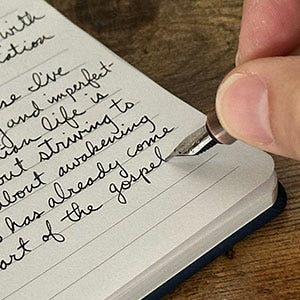 with
ation
se live
and imperfect
ian life is
out striving to
about awakening
has already come
art of the gospel